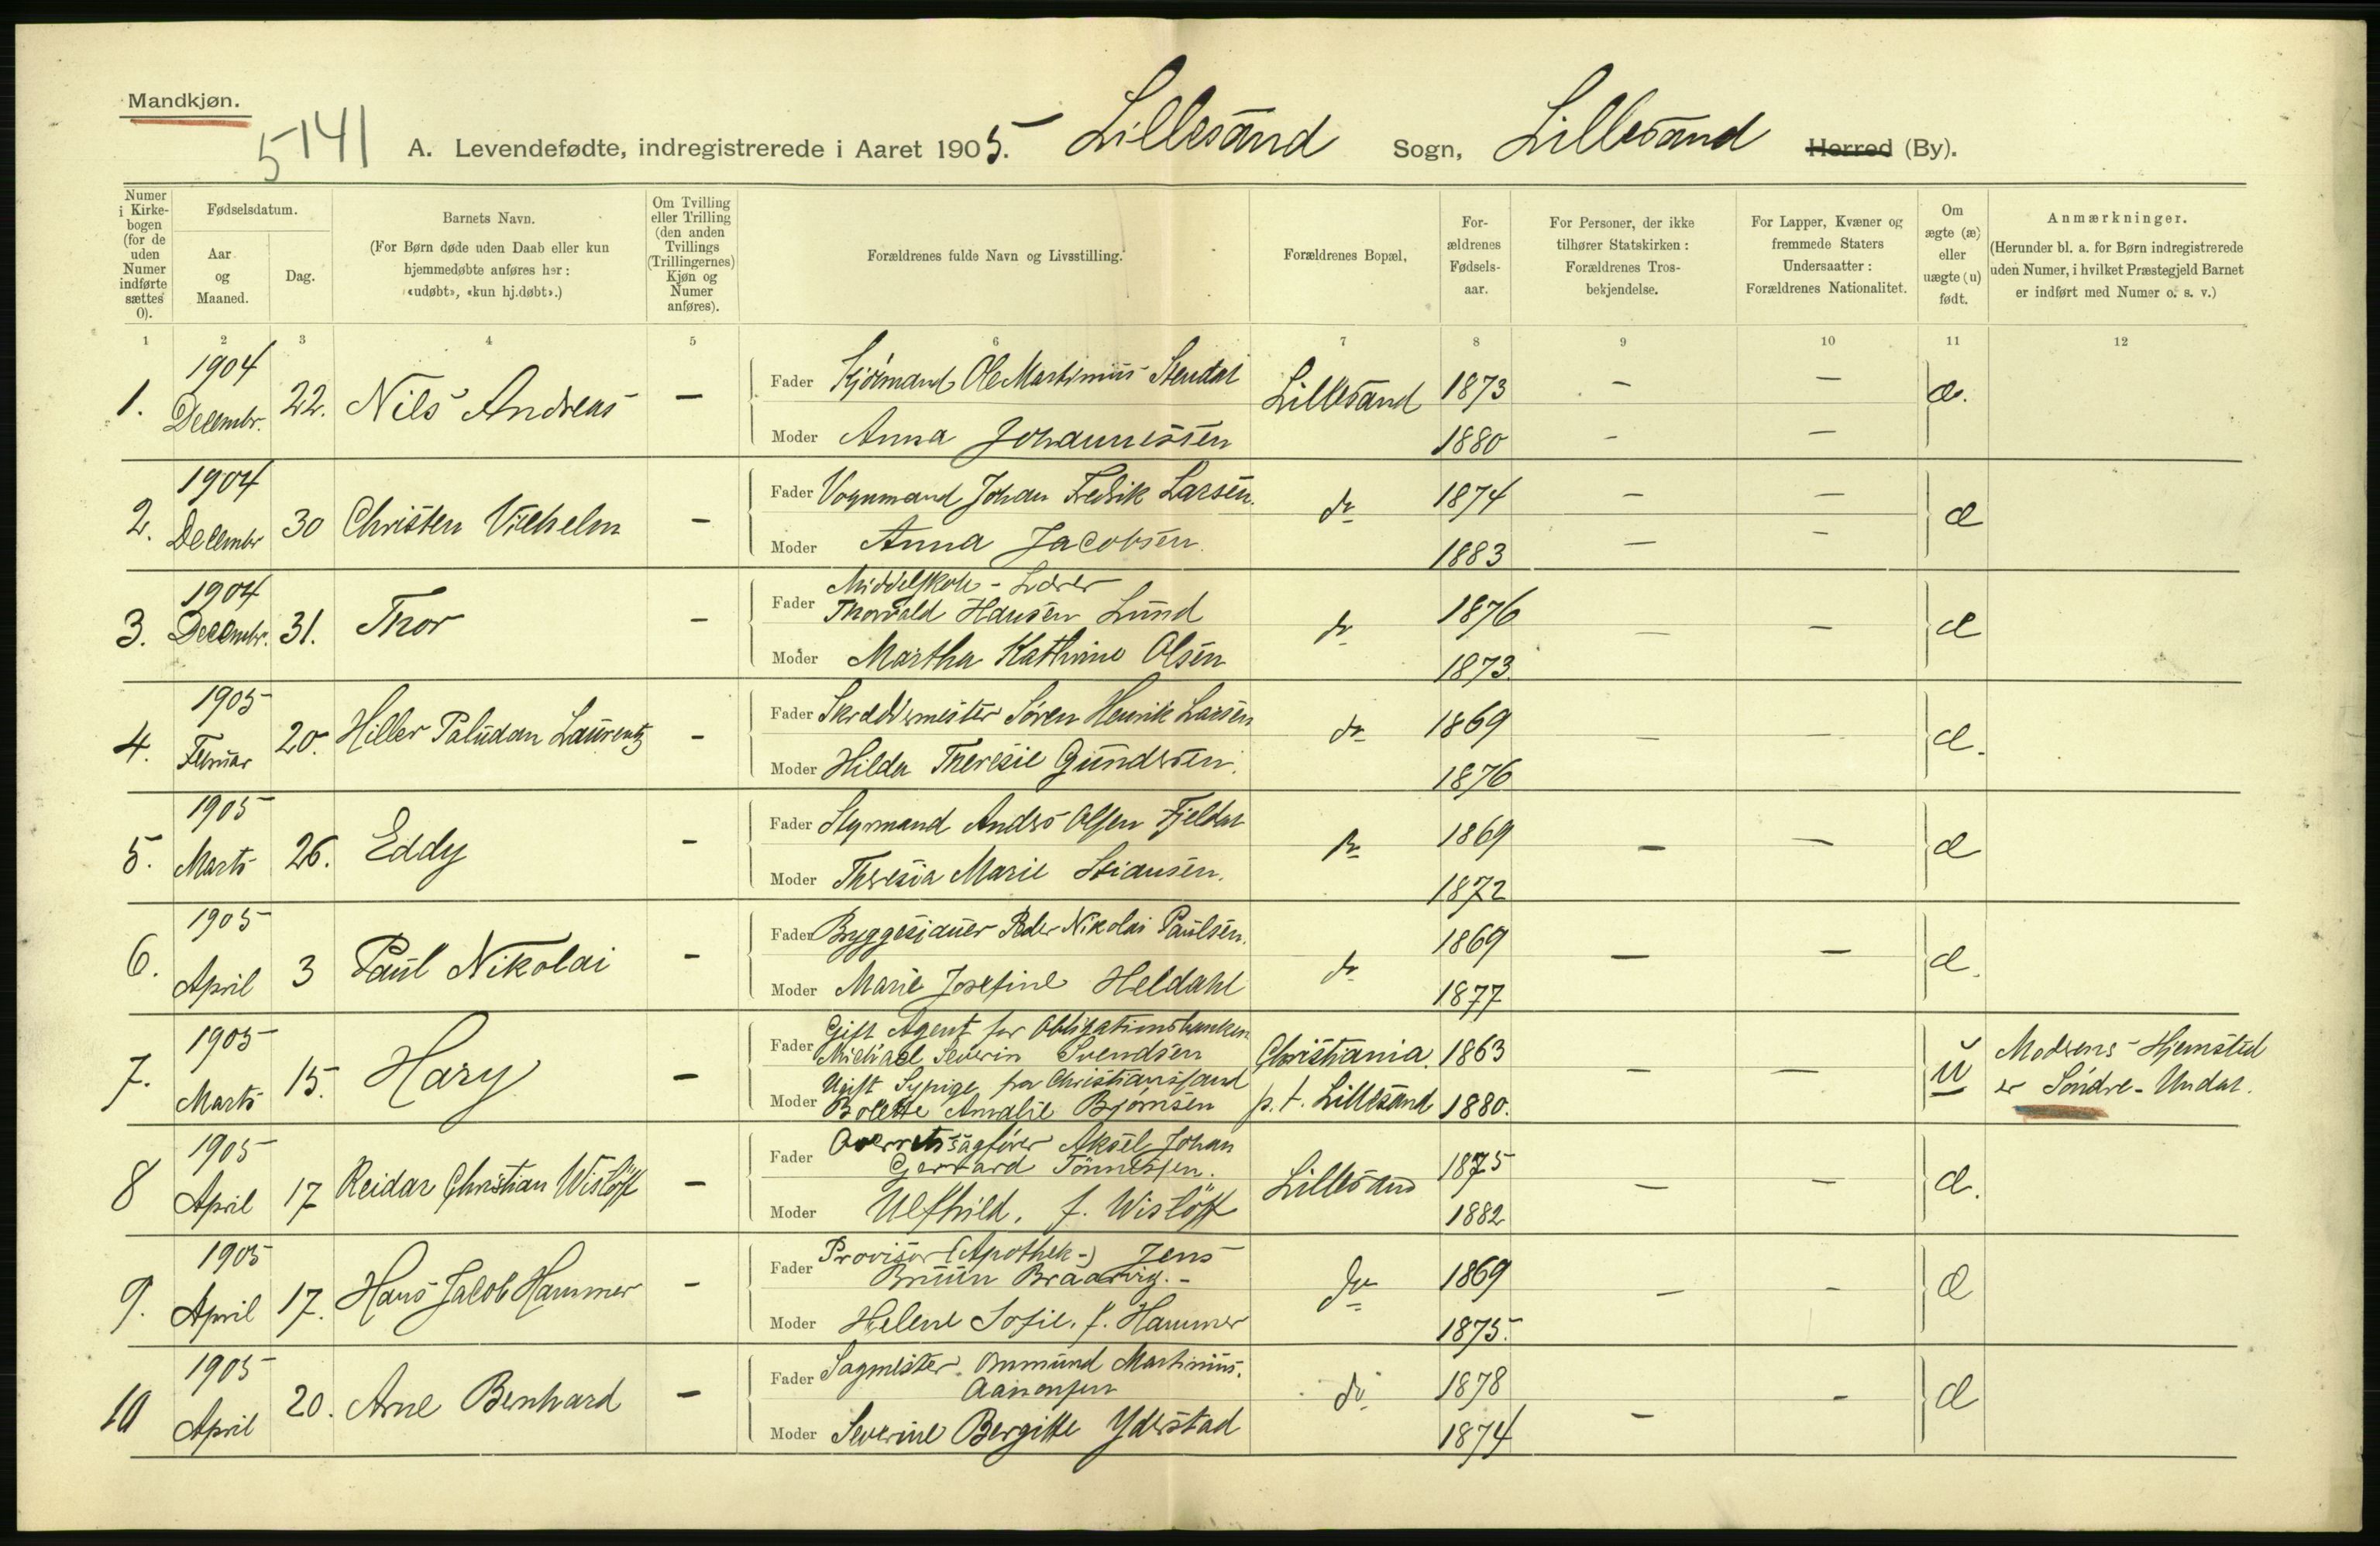 Mandkjøn.
5141
A. Levendefødte, indregistrerede i Aaret 1905. Lillesand Sogn, Lillesand Herred (By).
Numer i Kirkebogen (for de uden Numer indførte sættes 0).
Fødselsdatum.
Aar og Maaned.
Dag.
Barnets Navn.
(For Børn døde uden Daab eller kun hjemmedøbte anføres her: «udøbt», «kun hj.døbt».)
Om Tvilling eller Trilling (den anden Tvillings (Trillingernes) Kjøn og Numer anføres).
Forældrenes fulde Navn og Livsstilling.
Forældrenes Bopæl,
Forældrenes Fødselsaar.
For Personer, der ikke tilhører Statskirken: Forældrenes Trosbekjendelse.
For Lapper, Kvæner og fremmede Staters Undersaatter: Forældrenes Nationalitet.
Om ægte (æ) eller uægte (u) født.
Anmærkninger.
(Herunder bl. a. for Børn indregistrerede uden Numer, i hvilket Præstegjeld Barnet er indført med Numer o. s. v.)
1 2 3 4 5 6 7 8 9 10 11 12
1. 1904 Decembr. 22. Nils Andreas - Fader Sjømand Ole Martinius Stendal Lillesand 1873 - - æ.
Moder Anna Johannessen 1880 - -
2. 1904 Decembr 30 Christen Vilhelm - Fader Vognmand Johan Fredrik Larsen. do 1874 - - æ
Moder Anna Jacobsen. 1883 - -
3. 1904 Decembr. 31. Thor - Fader Middelskole-Lærer
Thorvald Hansen Lund do 1876 - - æ
Moder Martha Kathrine Olsen 1873.
4. 1905 Februar 20. Hiller Paludan Laurentz - Fader Skræddermester Søren Henrik Larsen do 1869 - - æ.
Moder Hilda Theresie Gundersen. 1876
5. 1905 Marts 26. Eddy - Fader Styrmand Anders Olsen Fjeldal do 1869 - - æ
Moder Theresia Marie Stiansen. 1872
6. 1905 April 3 Paul Nikolai - Fader Bryggesjauer Peder Nikolai Paulsen. do 1869 - - æ.
Moder Marie Josefine Heldahl 1877
7. 1905 Marts 15. Hary - Fader Gift Agent for Obligationsbanken
Michael Severin Svendsen Christiania. 1863 - - u Moderens Hjemsted
Moder Ugift Sypige fra Christianssand
Bolette Amalie Bjørnsen p. t. Lillesand 1880. er Søndre-Undal.
8 1905 April 17 Reidar Christian Wisløff - Fader Overretssagfører Aksel Johan
Gerrard Tønnessen. Lillesand 1875 - - æ.
Moder Ulfhild, f. Wisløff 1882
9. 1905 April 17. Hans Jacob Hammer - Fader Provisor (Apothek-) Jens
Bruun Braarvig. - do 1869 - - æ
Moder Helene Sofie, f. Hammer 1875.
10 1905 April 20. Arne Bernhard - Fader Sagmester Ommund Martinius.
Aanonsen do 1878 - - æ
Moder Severine Bergitte Yderstad 1874